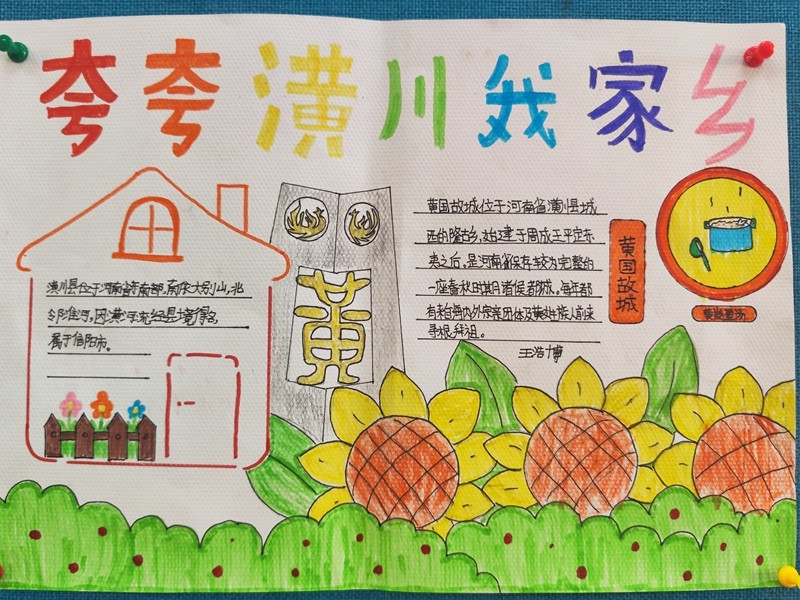 夸夸潢川我家乡
潢川县位于河南省东南部，南依大别山，北
邻淮河，因潢河穿经县境得名，
属于信阳市。
黄
黄国故城位于河南省潢川县城
西的隆古乡，始建于周成王平定东
夷之后，是河南省保存较为完整的
一座春秋时期诸侯者城。每年都
有来自海内外宗亲团体及黄姓族人前来
寻根拜祖。
王浩博
黄国故城